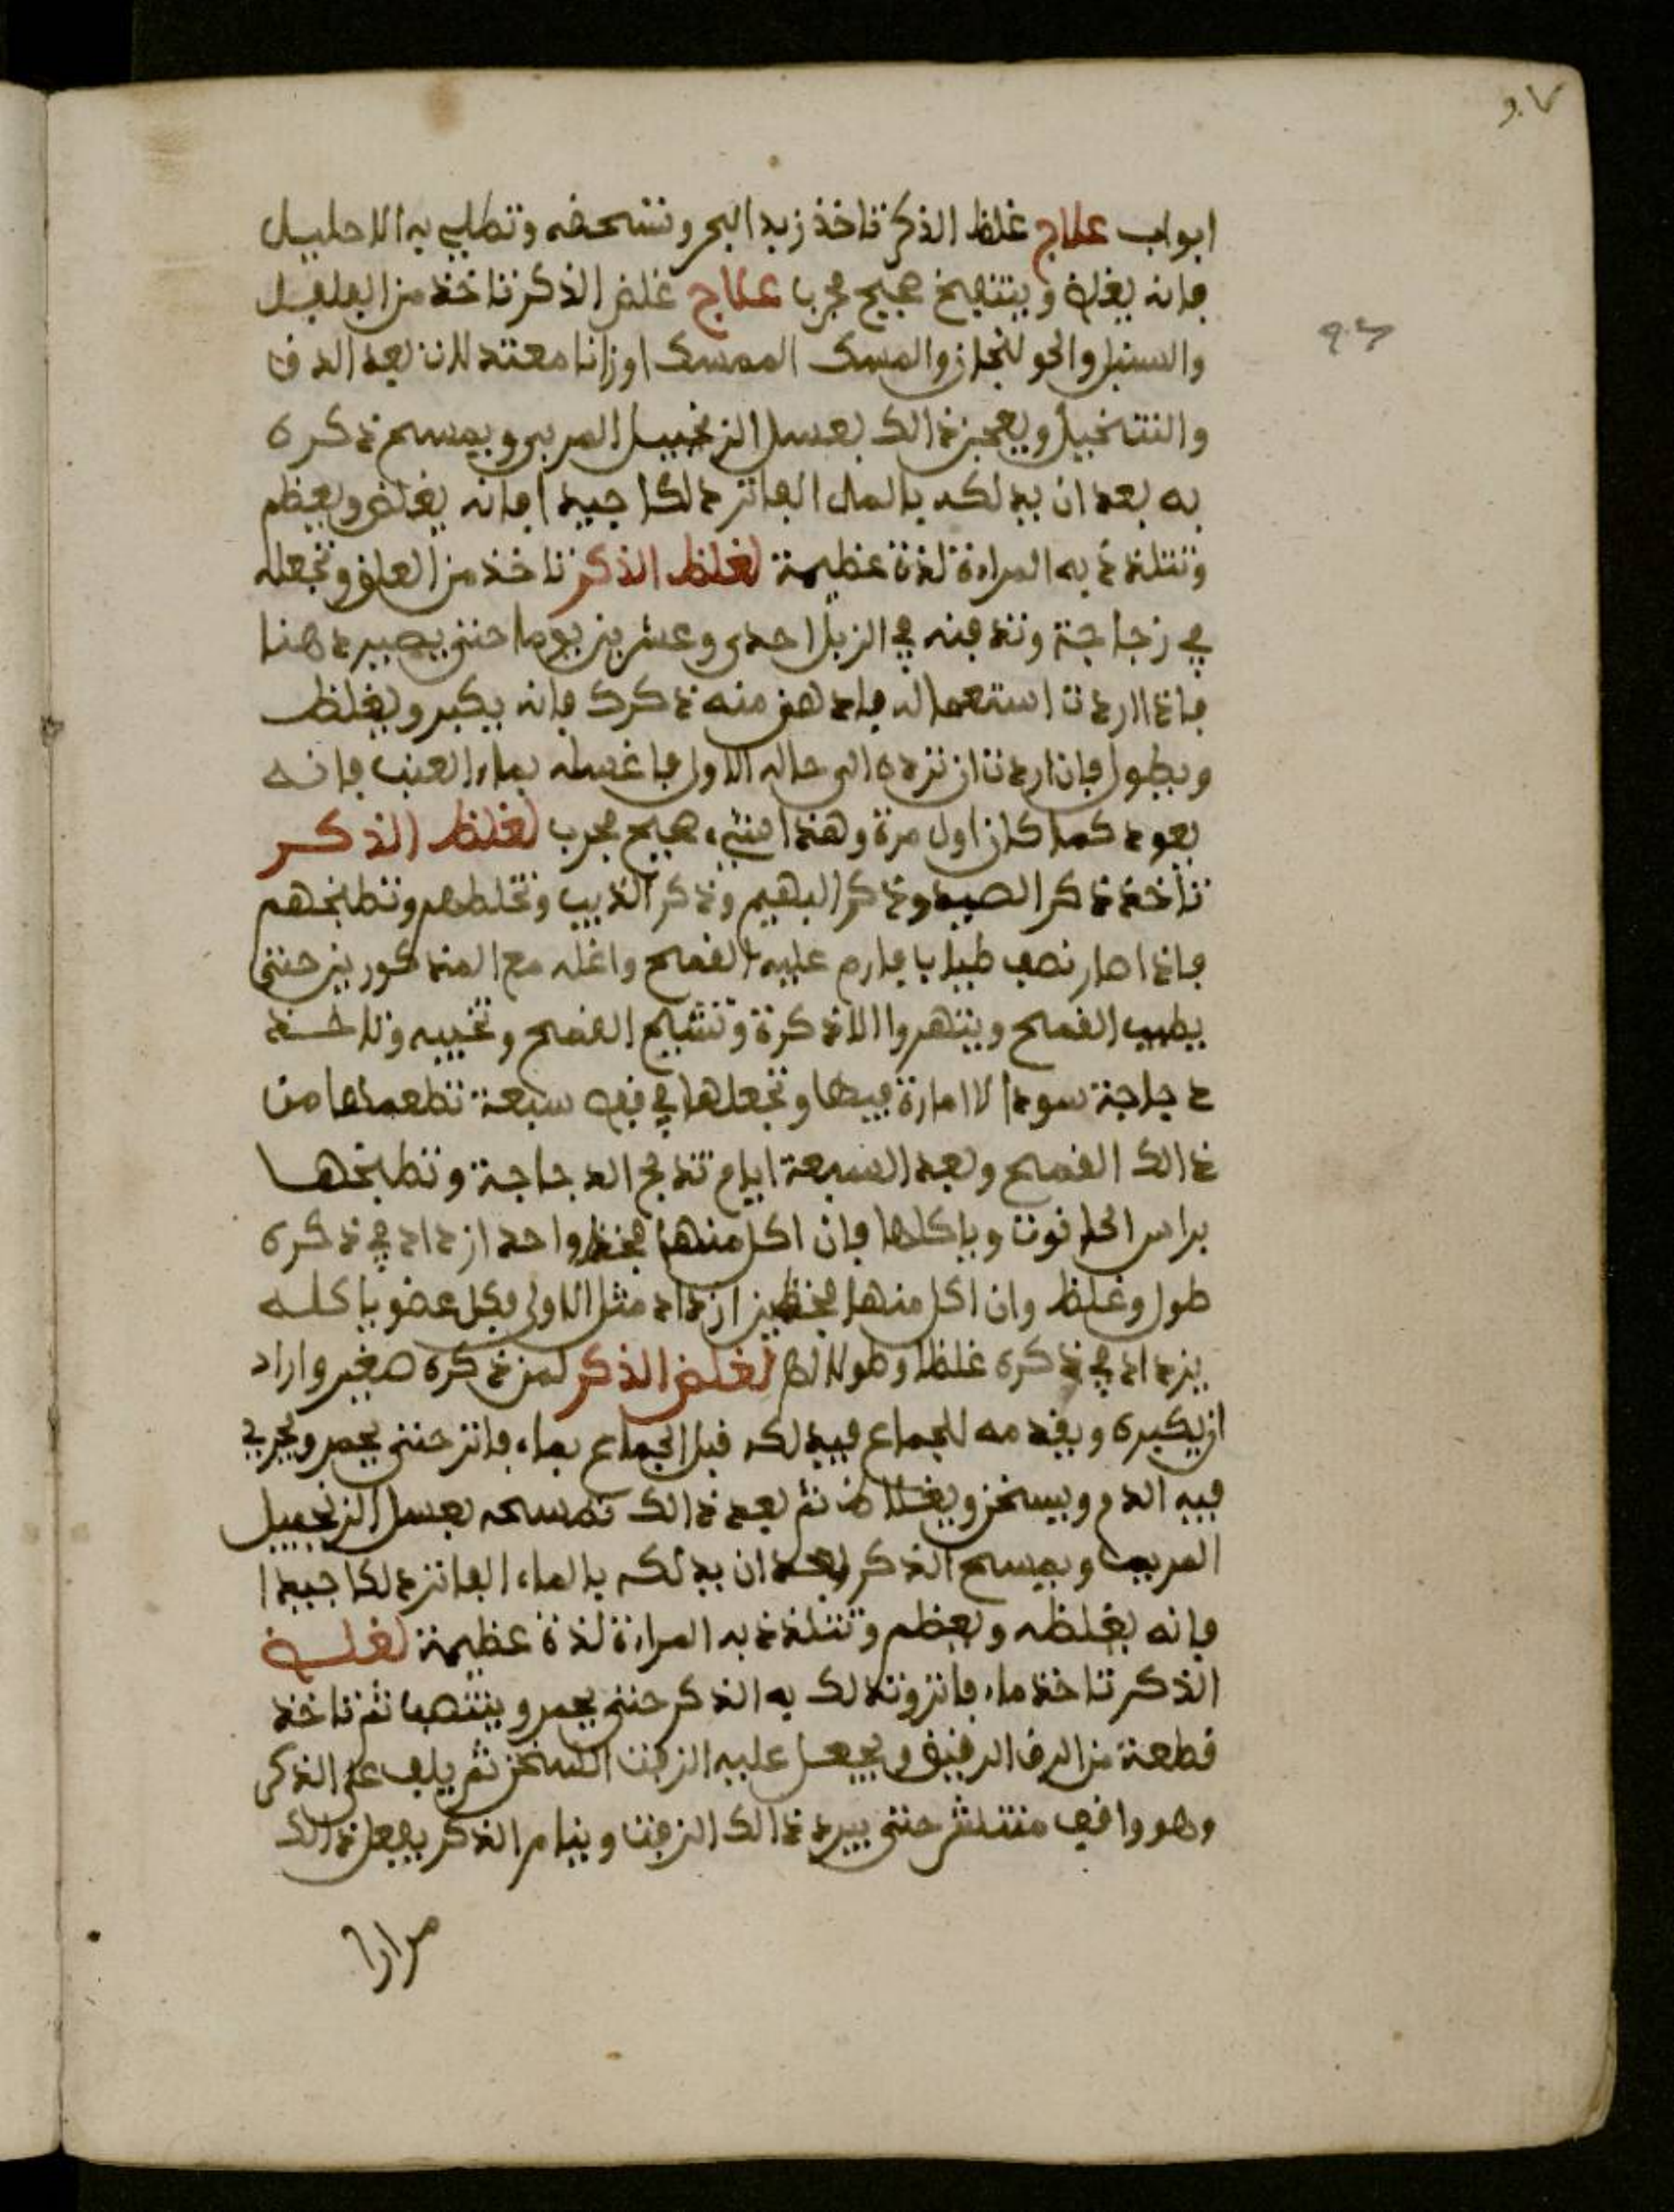 ابواب علاج غلظ الذكر تاخذ زبد البحر وتسحفه وتطلي به الاحليل
فانه يغلظ وينتفخ صحيح مجرب علاج غلض الذكر تاخذ من الفلفل
والسنبل والخولنجان والمسك الممسك اوزانا معتدلات بعد الدق
والتنخيل ويعجن ذالك بعسل الزنجبيل المربى ويمسح ذكره
به بعد ان يدلكه بالماء الفاتر دلكا جيدا فانه يغلض ويعظم
وتتلذذ به المراءة لذة عظيمة لغلظ الذكر تاخذ من العلق وتجعله
في زجاجة وتدفنه في الزبل احدى وعشرين يوما حتى يصير دهنا
فاذا اردت استعماله فادهن منه ذكرك فانه يكبر ويغلظ
ويطول فان اردت ان ترده الى حاله الاول فاغسله بماء العنب فانه
يعود كما كان اول مرة وهذا صحيح مجرب لغلظ الذكر
تاخذ ذكر الصيد وذكر البهيم وذكر الذيب وتخلطهم وتطبخهم
فاذا صار نصف طيابا فارم عليه القمح واغله مع المذكورين حتى
يطيب القمح ويتهروا الاذكرة وتشيح القمح وتخييه وتاخذ
دجاجة سودا لا امارة فيها وتجعلها في قفص سبعة تطعمها من
ذالك القمح وبعد السبعة ايام تذبح الدجاجة وتطبخها
براس الحانوت وياكلها فان اكل منها فخظ واحد ازداد في ذكره
طول وغلظ وان اكل منها فخظين ازداد مثل الاول فكل عضو ياكله
يزداد في ذكره غلظا وطولا لغلض الذكر لمن ذكره صغير واراد
ان يكبره ويقدمه للجماع فيدلكه قبل الجماع بماء فاتر حتى يحمر ويجري
فيه الدم ويسخن ويغلاض ثم بعد ذالك تمسحه بعسل الزنجبيل
المربب ويمسح الذكر بعد ان يدلكه بالماء الفاتر دلكا جيدا
فانه يغلظه ويعظم وتتلذذ به المراءة لذة عظيمة لغلض
الذكر تاخذ ماء فاتر وتدلك به الذكر حتى يحمر وينتصب ثم تاخذ
قطعة من الرق الرقيق ويجعل عليه الزفت السخن ثم يلف على الذكر
وهو واقف منتشر حتى يبرد ذالك الزفت وينام الذكر يفعل ذالك
مرارا